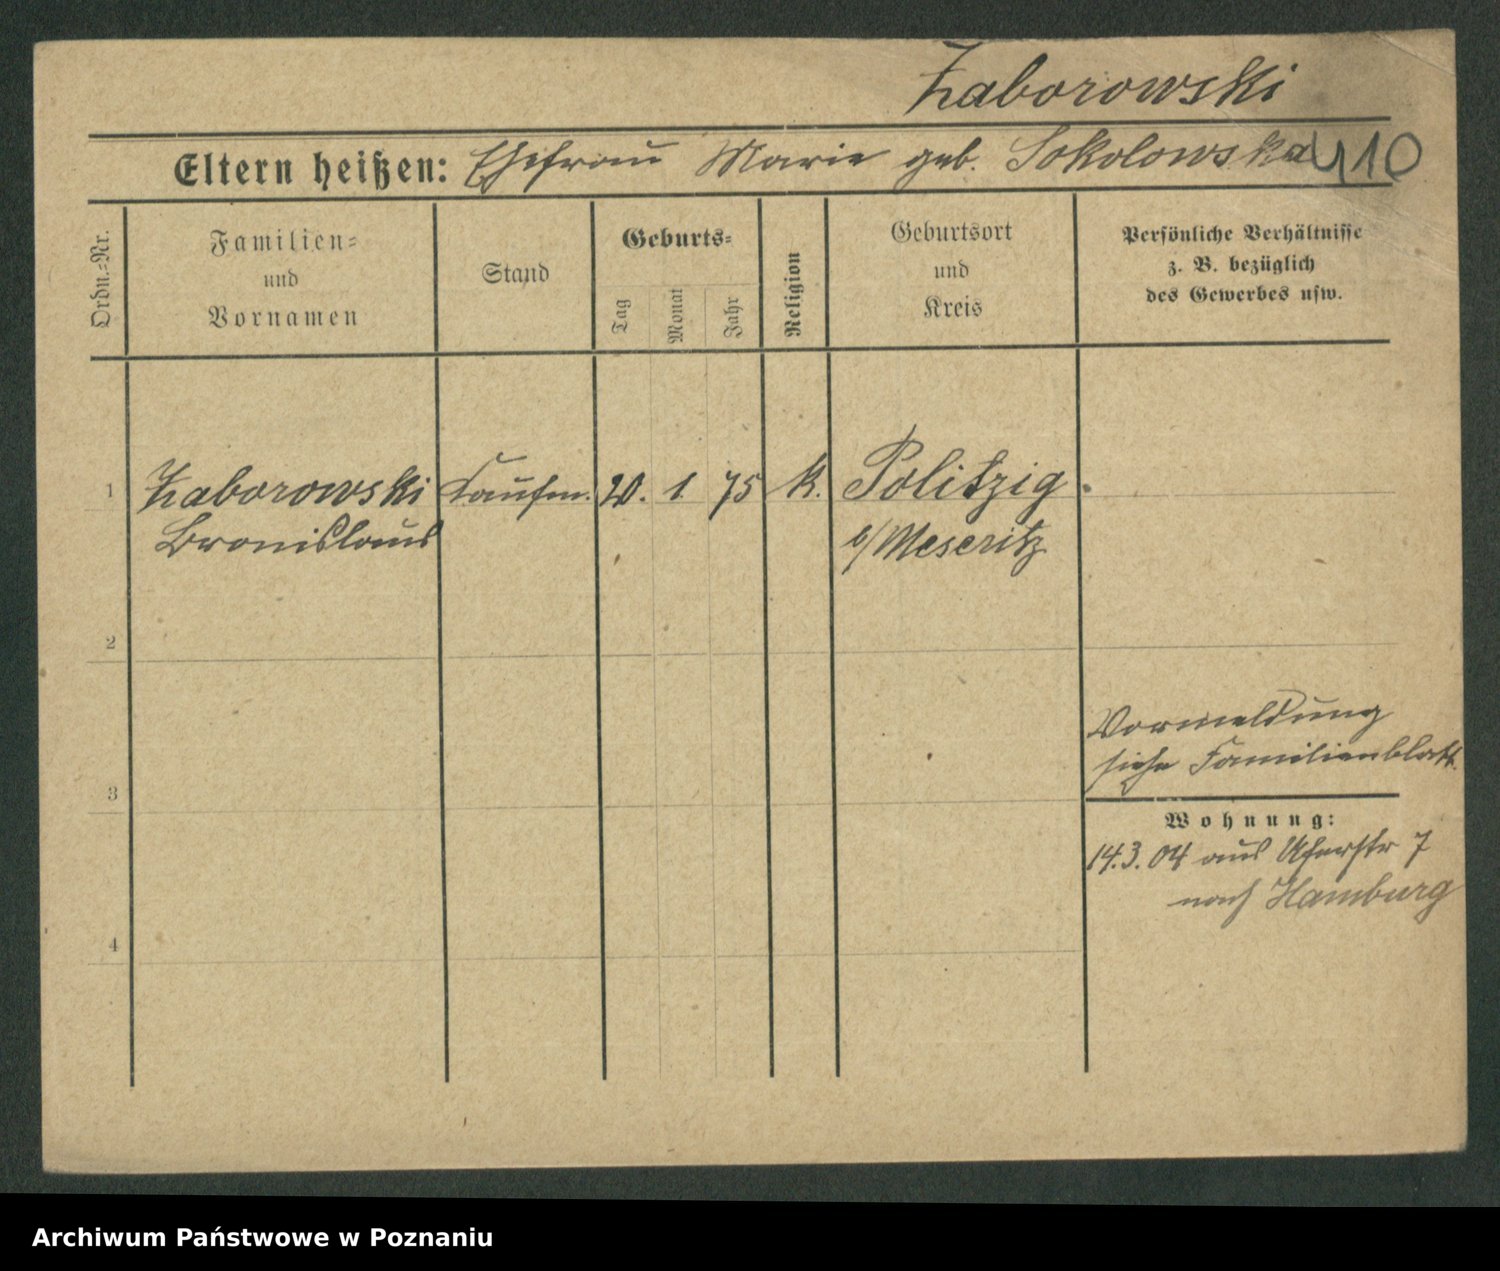 Zaborowski
Eltern heißen: Ehefrau Marie geb. Sokolowska 410
Ordn.-Nr.
Familien-
und
Vornamen
Stand
Geburts-
Tag
Monat
Jahr
Religion
Geburtsort
und
Kreis
Persönliche Verhältnisse
z. B. bezüglich
des Gewerbes usw.
1 Zaborowski Kaufm. 20. 1. 75 k. Politzig
Bronislaus b/Meseritz
2
Vormeldung
siehe Familienblatt.
3
Wohnung:
14.3.04 aus Uferstr 7
nach Hamburg
4
Archiwum Państwowe w Poznaniu